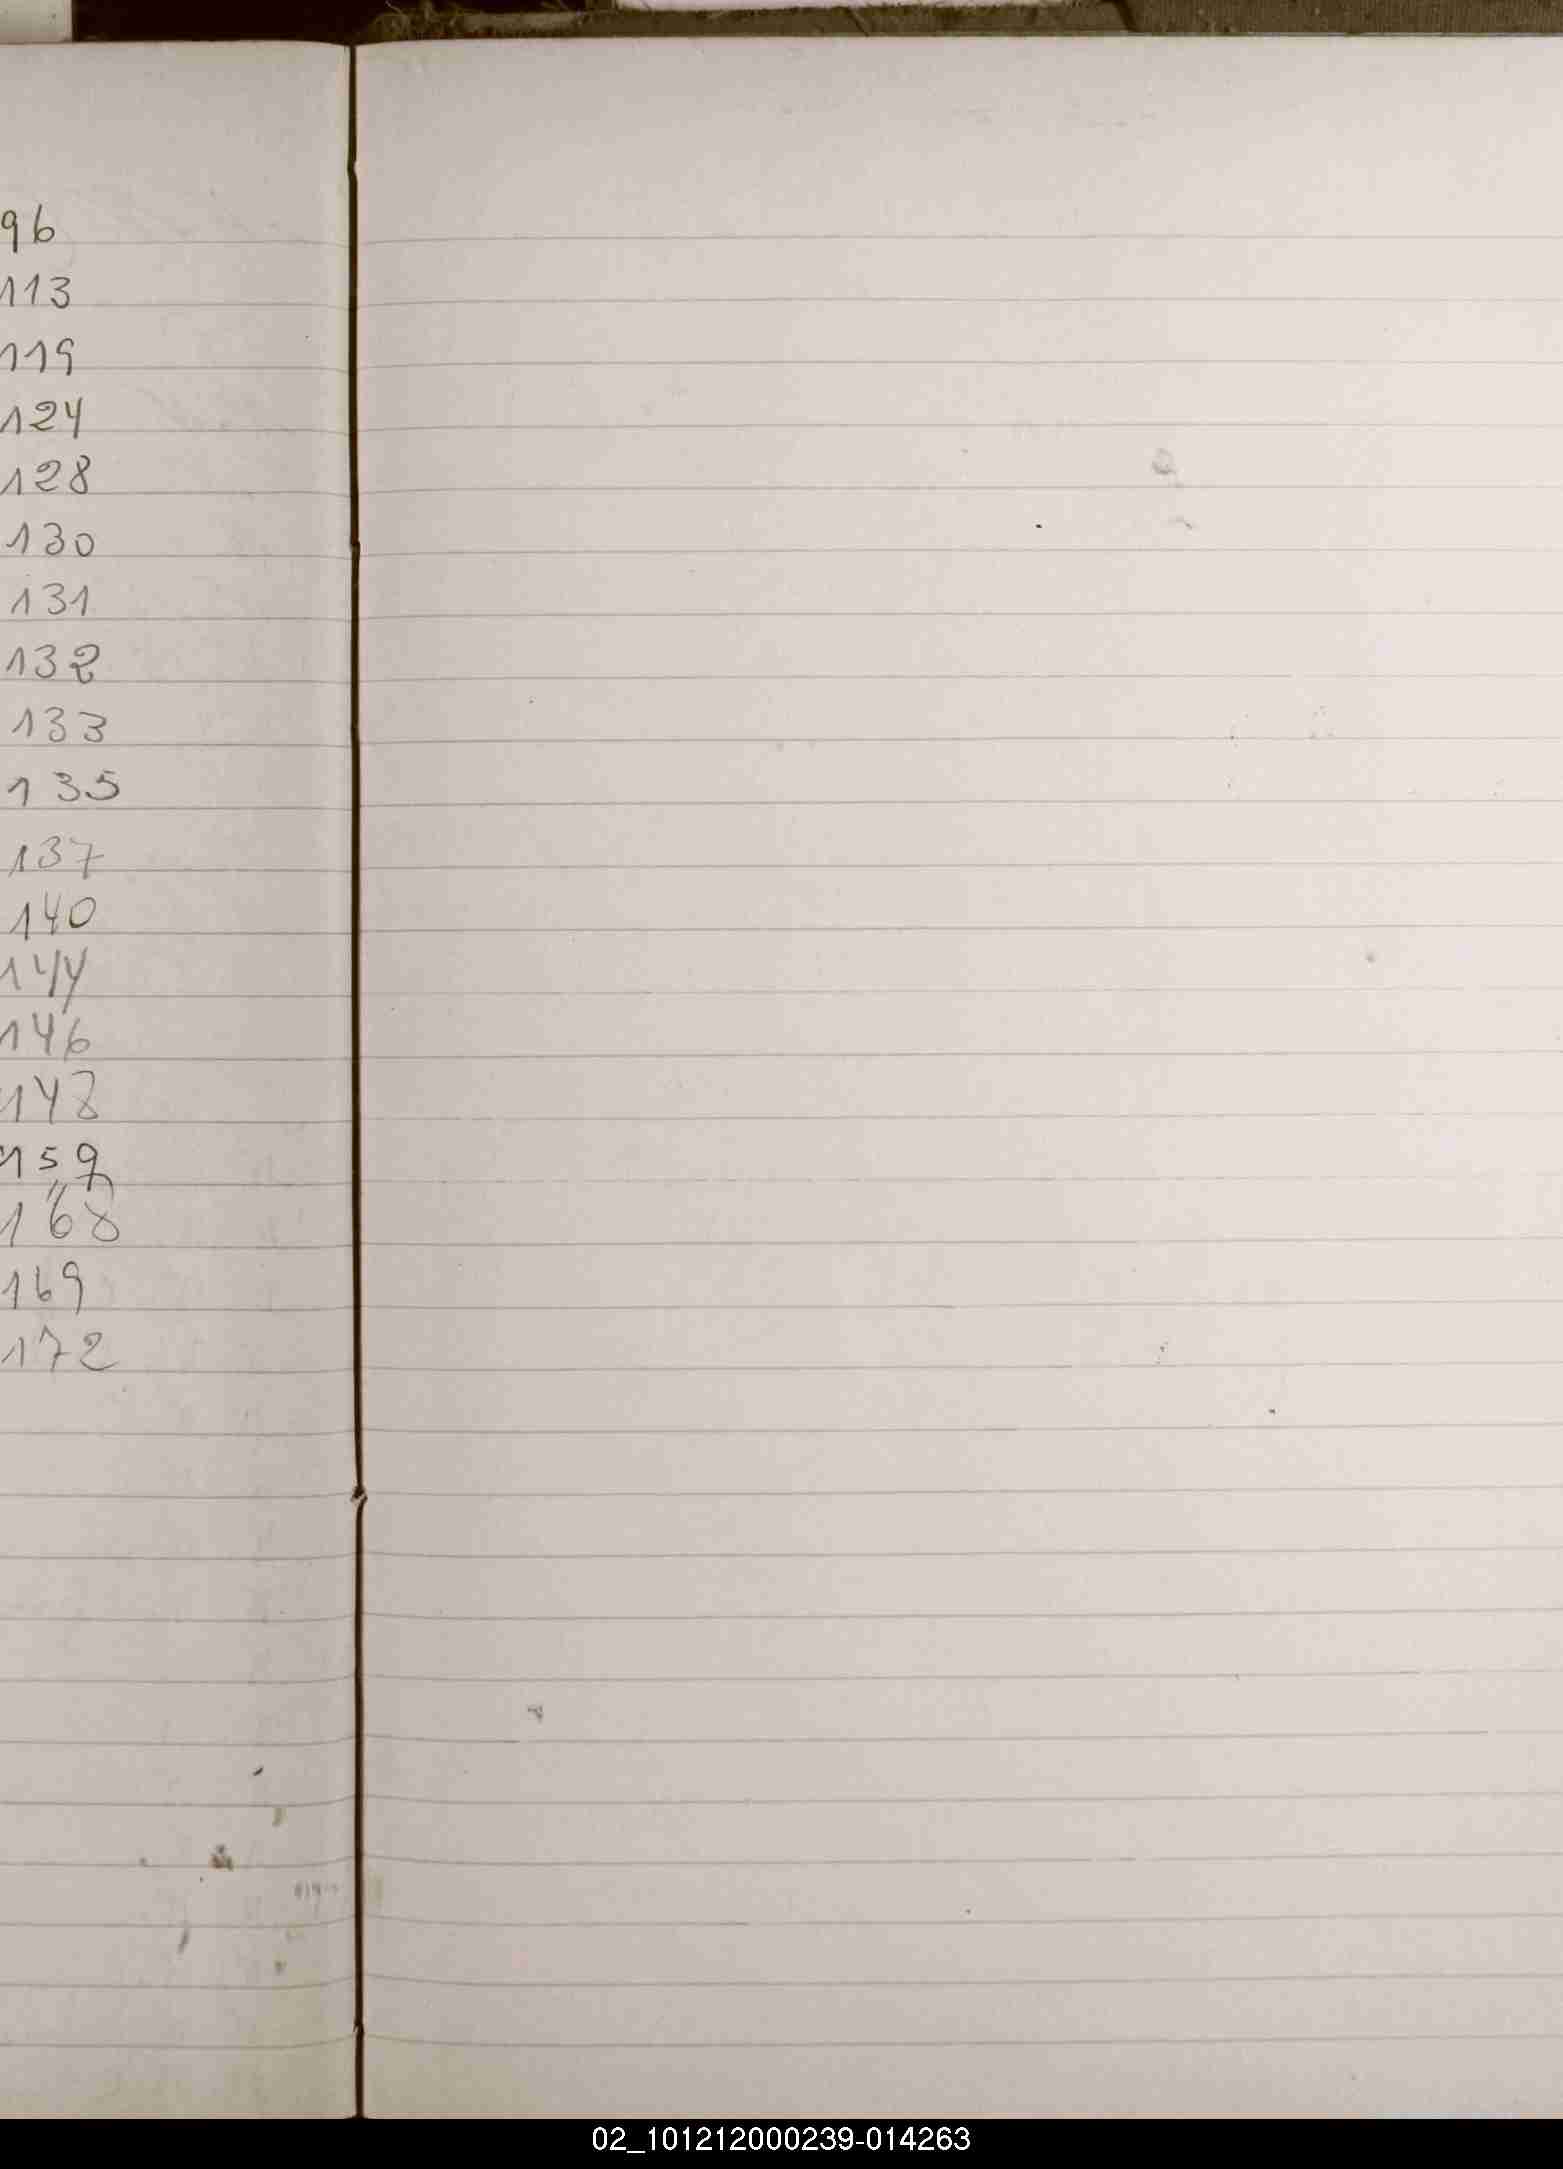 96
113
119
124
128
130
131
132
133
135
137
140
144
146
148
159
168
169
172
02_101212000239-014263